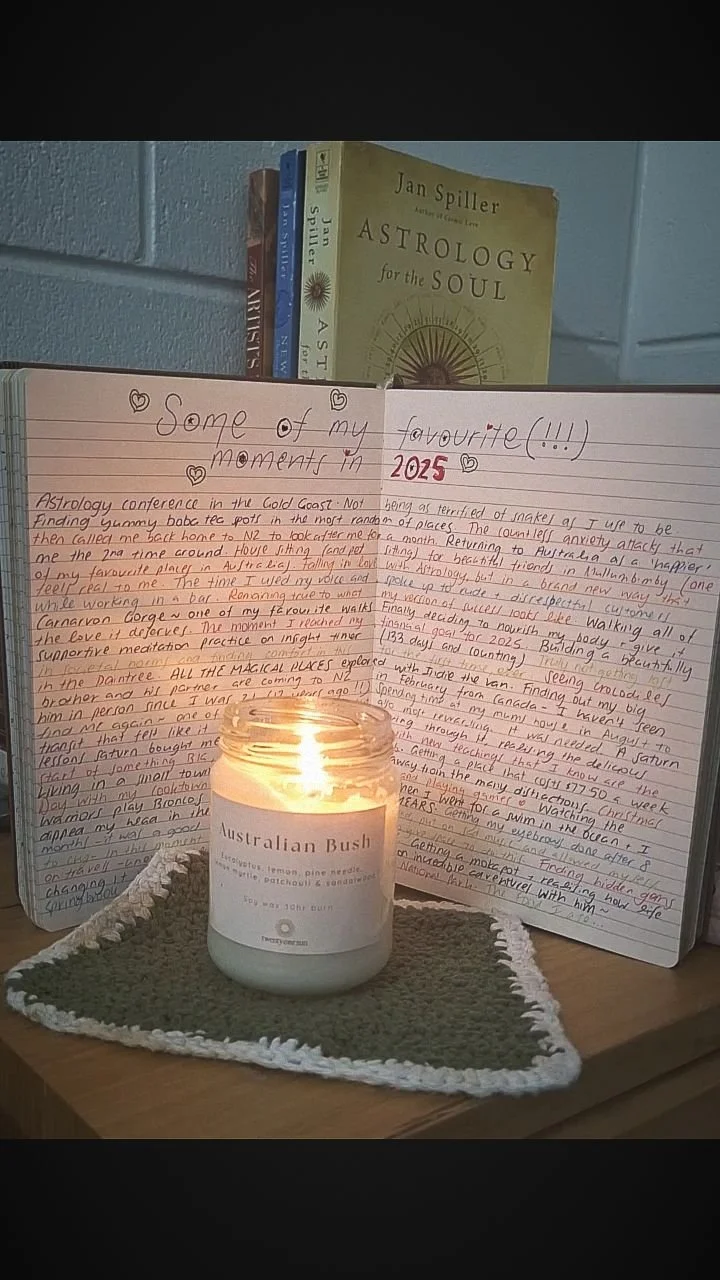 Jan Spiller
Author of Cosmic Love
ASTROLOGY
for the SOUL
Jan Spiller
AST
for t
Jan Spiller
NEW
The ARTIST'S
Some of my favourite(!!!)
moments in 2025
Astrology conference in the Gold Coast. Not being as terrified of snakes as I use to be.
Finding yummy boba tea spots in the most random of places. The countless anxiety attacks that
then called me back home to NZ to look after me for a month. Returning to Australia as a 'happier'
me the 2nd time around. House sitting (and pet sitting) for beautiful friends in Mullumbimby (one
of my favourite places in Australia). Falling in love with Astrology but in a brand new way that
feels real to me. The time I used my voice and spoke up to rude + disrespectful customers
while working in a bar. Remaining true to what my version of success looks like. Walking all of
Carnarvon Gorge ~ one of my favourite walks. Finally deciding to nourish my body + give it
the love it deserves. The moment I reached my financial goal for 2025. Building a beautifully
supportive meditation practice on insight timer (133 days and counting) Truly not getting lost
in societal norms and finding comfort in this for the first time ever. Seeing crocodiles
in the Daintree. ALL THE MAGICAL PLACES explored with Indie the van. Finding out my big
brother and his partner are coming to NZ in February from Canada - I haven't seen
him in person since I was 21 (12 years ago!!) Spending time at my mums house in August to
find me again ~ one of also most rewarding. It was needed. A saturn
transit that felt like it going through it realising the delicous
lessons saturn bought me with new teachings that I know are the
start of something BIG. Getting a place that costs $77.50 a week
Living in a small town away from the many distractions. Christmas
Day with my cooktown and playing games Watching the
Warriors play Broncos when I went for a swim in the ocean + I
dipped my head in the YEARS. Getting my eyebrows done after 8
months - it was a good
to cry in this moment give grace to this. Finding hidden gems
on travels Getting a mokapot + realising how life
changing it on incredible adventures with him ~
Springbrook National Park. The food I ate...
Australian Bush
Eucalyptus, lemon, pine needle,
myrtle, patchouli & sandalwood
Soy wax 30hr burn
twentyonesun